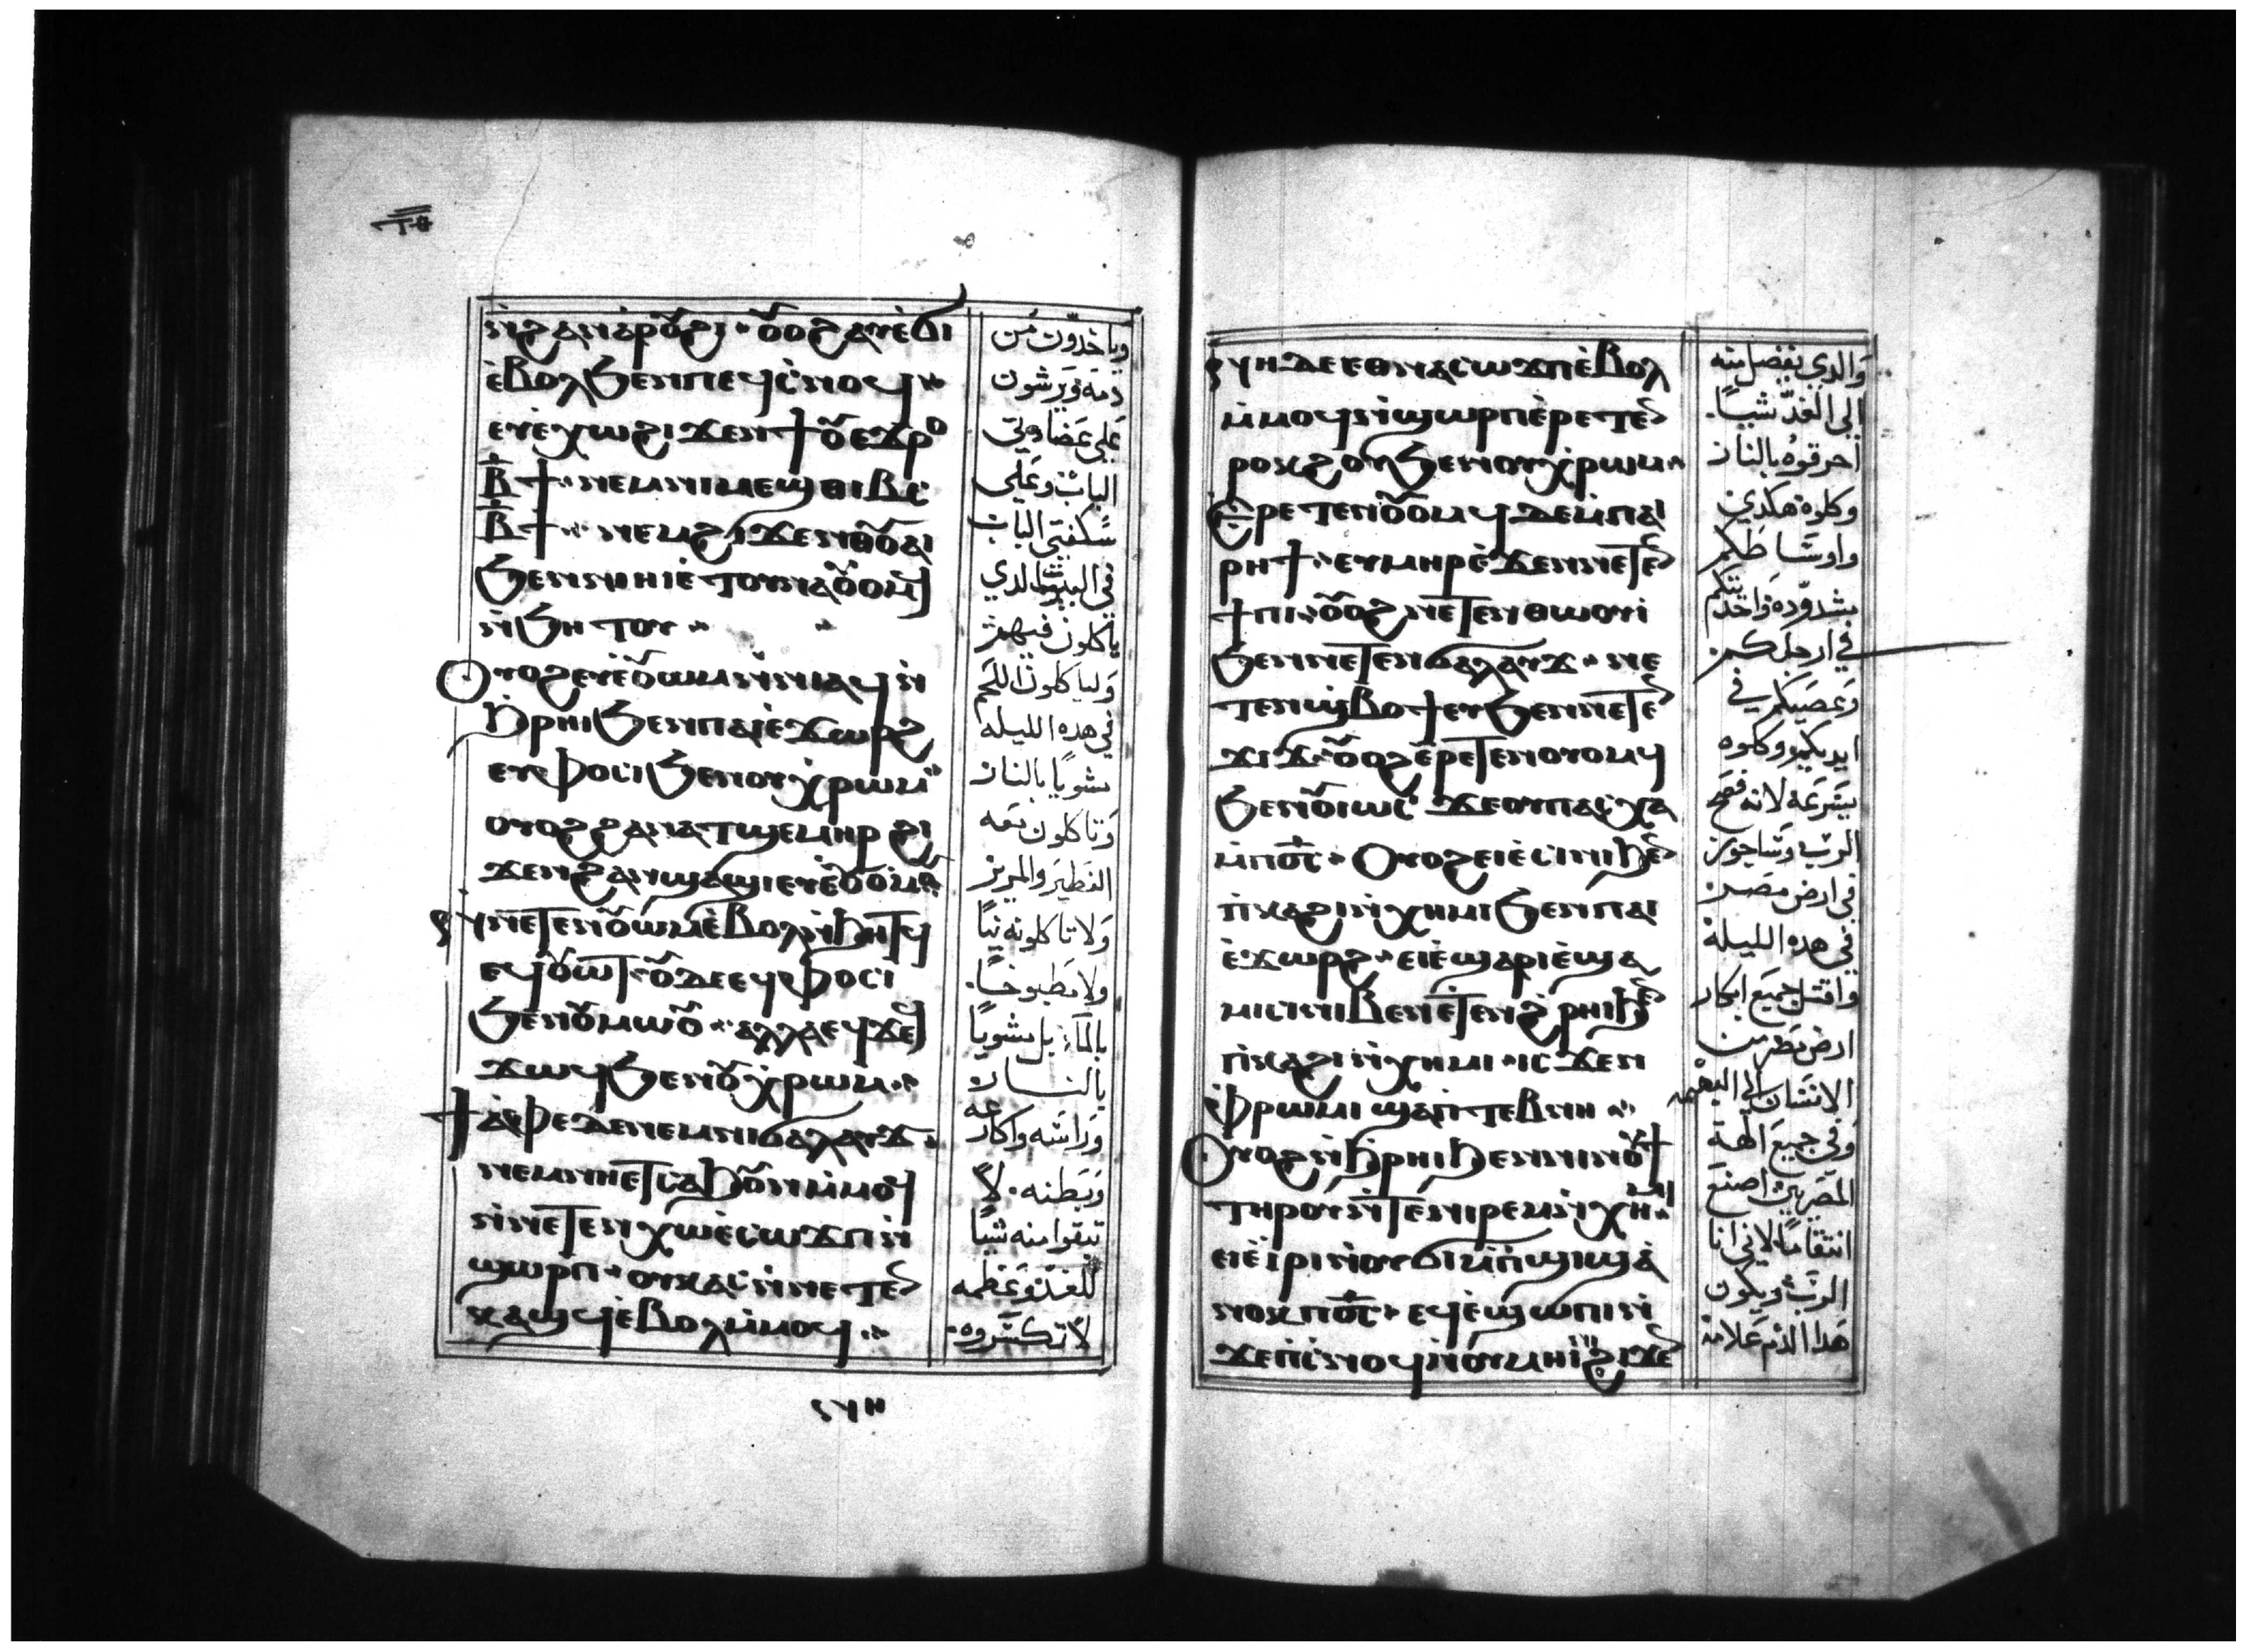 ⲧⲑ
ⲛϩⲁⲛⲁⲣⲟ̄ϩⲓ · ⲟ̄ⲟϩ ⲁⲩⲉ̀ϭⲓ
ⲉ̀ⲃⲟⲗϧⲉⲛⲡⲉϥⲥ̀ⲛⲟϥ
ⲉⲩⲉ̀ⲭⲱϩⲓϫⲉⲛϯⲟ̄ⲉϫⲣⲟ
ⲃ̄ϯ · ⲛⲉⲙⲛⲓⲙⲉϣⲑⲓⲃⲥ
ⲃ̄ϯ · ⲛⲉⲙϩⲓϫⲉⲛⲟ̄ⲟ̄ⲁⲓ
ϧⲉⲛⲛⲏⲓⲉ̀ⲧⲟⲩⲛⲁⲟ̄ⲟⲙϥ
ⲛ̀ϧⲏⲧⲟⲩ
Ⲟⲩⲟϩⲉⲩⲉ̀ⲟ̄ⲱⲙⲛ̀ⲛⲓⲁϥ ⲛ̀
ϧⲣⲏⲓϧⲉⲛⲡⲁⲓⲉ̀ϫⲱⲣϩ
ⲉϥⲫⲟⲥⲓϧⲉⲛⲟⲩⲭⲣⲱⲙ
ⲟⲩⲟϩϩⲁⲛⲁⲧϣⲉⲙⲏⲣ ϩⲓ
ϫⲉⲛϩⲁⲛϣⲁϣⲓⲉⲩⲉ̀ⲟ̄ⲟⲙϥ
ⲛⲛⲉⲧⲉⲛⲟ̄ⲱⲙⲉ̀ⲃⲟⲗⲛ̀ϧⲏⲧϥ
ⲉϥⲟ̄ⲱⲧ · ⲟ̄ⲇⲉⲉϥⲫⲟⲥⲓ
ϧⲉⲛⲟ̄ⲙⲱⲟ̄ · ⲁⲗⲗⲁⲉϥϫⲉϥ
ϫⲱϥϧⲉⲛⲟ̄ⲭⲣⲱⲙ
ϯⲁ̀ⲫⲉⲇⲉⲛⲉⲙⲛⲓϭⲁⲗⲁⲩϫ
ⲛⲉⲙⲛⲏⲉⲧⲥⲁϧⲟ̄ⲛⲙ̀ⲙⲟϥ
ⲛ̀ⲛⲉⲧⲉⲛⲭⲱⲉ̀ⲥⲱϫⲡⲛ̀
ϣⲱⲣⲡ · ⲟⲩⲕⲁⲥⲛ̀ⲛⲉⲧⲉⲛ
ⲕⲁϣϥⲉ̀ⲃⲟⲗⲙ̀ⲙⲟϥ
وياخدون من
دمه ويرشون
علي عضادتي
الباب وعلي
سكفتي الباب
في البيوت الدي
ياكلون فيهم
ولياكلون اللحم
في هده الليله
مشويا بالنار
وتاكلون معه
الفطير والمرير
ولا تاكلونه نيا
ولا مطبوخا
بالما بل مشويا
بالنار
وراسه واكارعه
وبطنه · لا
تبقوا منه شيا
للغد وعظمه
لا تكسروه
ⲛⲏⲇⲉⲉⲑⲛⲁⲥⲱϫⲡⲉ̀ⲃⲟⲗ
ⲙ̀ⲙⲟϥⲛ̀ϣⲱⲣⲡⲉ̀ⲣⲉⲧⲉⲛ
ⲣⲟⲕϩⲟⲩϧⲉⲛⲟⲩⲭⲣⲱⲙ
Ⲉⲣⲉⲧⲉⲛⲟ̄ⲟⲙϥⲇⲉⲙ̀ⲡⲁⲓ
ⲣⲏϯ · ⲉⲩⲙⲏⲣⲉ̀ϫⲉⲛⲛⲉⲧⲉⲛ
ϯⲡⲓ · ⲟ̄ⲟϩ ⲛⲉⲧⲉⲛⲑⲱⲟⲩⲓ
ϧⲉⲛⲛⲉⲧⲉⲛϭⲁⲗⲁⲩϫ · ⲛⲉ
ⲧⲉⲛϣ̀ⲃⲟϯⲉⲩϧⲉⲛⲛⲉⲧⲉⲛ
ϫⲓϫ · ⲟ̄ⲟϩⲉ̀ⲣⲉⲧⲉⲛⲟⲩⲟⲙϥ
ϧⲉⲛⲟ̄ⲓⲱⲥ ϫⲉⲟⲩⲡⲁⲥⲭⲁ
ⲙ̀ⲡⲟ̄ⲥ̄ · Ⲟⲩⲟϩⲉⲓⲉ̀ⲥⲓⲛⲓϧⲉⲛ
ⲡ̀ⲕⲁϩⲓⲛ̀ⲭⲏⲙⲓϧⲉⲛⲡⲁⲓ
ⲉ̀ϫⲱⲣϩ · ⲉⲓⲉ̀ϣⲁⲣⲓⲉ̀ϣⲁ
ⲙⲓⲥⲓⲛⲓⲃⲉⲛⲉ̀ⲧⲉⲛϩ̀ⲣⲏⲓϧⲉⲛ
ⲡ̀ⲕⲁϩⲓⲛ̀ⲭⲏⲙⲓ · ⲓⲥϫⲉⲛ
ⲫ̀ⲣⲱⲙⲓ ϣⲁⲡ̀ⲧⲉⲃⲛⲏ
Ⲟⲩⲟϩⲛ̀ϧⲣⲏⲓϧⲉⲛⲛⲓⲛⲟ̄ϯ
ⲧⲏⲣⲟⲩⲛ̀ⲧⲉⲛⲓⲣⲉⲙⲛ̀ⲭⲏⲙⲓ
ⲉⲓⲉ̀ⲓ̀ⲣⲓⲛ̀ⲟⲩϭⲓⲙ̀ⲡ̀ϣⲓϣ ⲁ̀
ⲛⲟⲕⲡⲟ̄ⲥ̄ · ⲉϥⲉ̀ϣⲱⲡⲓⲛ̀
ϫⲉⲡⲓⲥ̀ⲛⲟϥⲛ̀ⲟⲩⲙⲏⲓⲛⲓϩⲓϫⲉⲛ
والدي يفضل منه
الي الغد شيا
احرقوه بالنار
وكلوه هكدي
واوساطكم
مشدوده واحديتكم
في ارجلكم
وعصيكم في
ايديكم وكلوه
بسرعه لانه فصح
الرب وساجوز
في ارض مصر
في هده الليلة
واقتل جميع ابكار
ارض مصر من
الانسان الي البهيمه
وفي جميع الهة
المصريين اصنع
انتقاما لاني انا
الرب ويكون
هدا الدم علامة